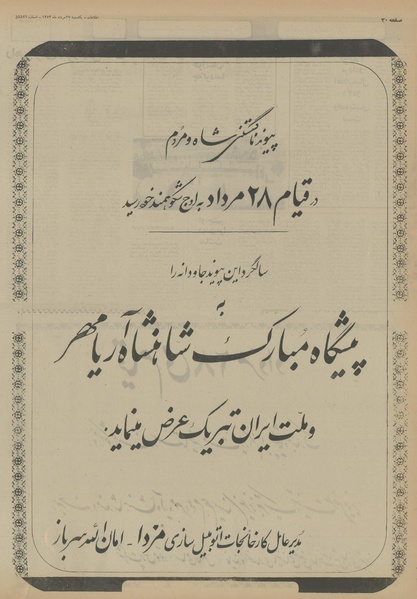 صفحه ۲۰
پیوند ناگسستنی شاه و مردم
در قیام ۲۸ مرداد به اوج شکوهمند خود رسید
سالگرد این پیوند جاودانه را
به
پیشگاه مبارک شاهنشاه آریامهر
و ملت ایران تبریک عرض مینماید.
مدیر عامل کارخانجات اتومبیل سازی مزدا - امان الله سرباز